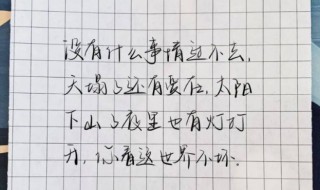 没有什么事情过不去,
天塌了还有聚在,太阳
下山了夜里也有灯打
开,你看这世界不坏.